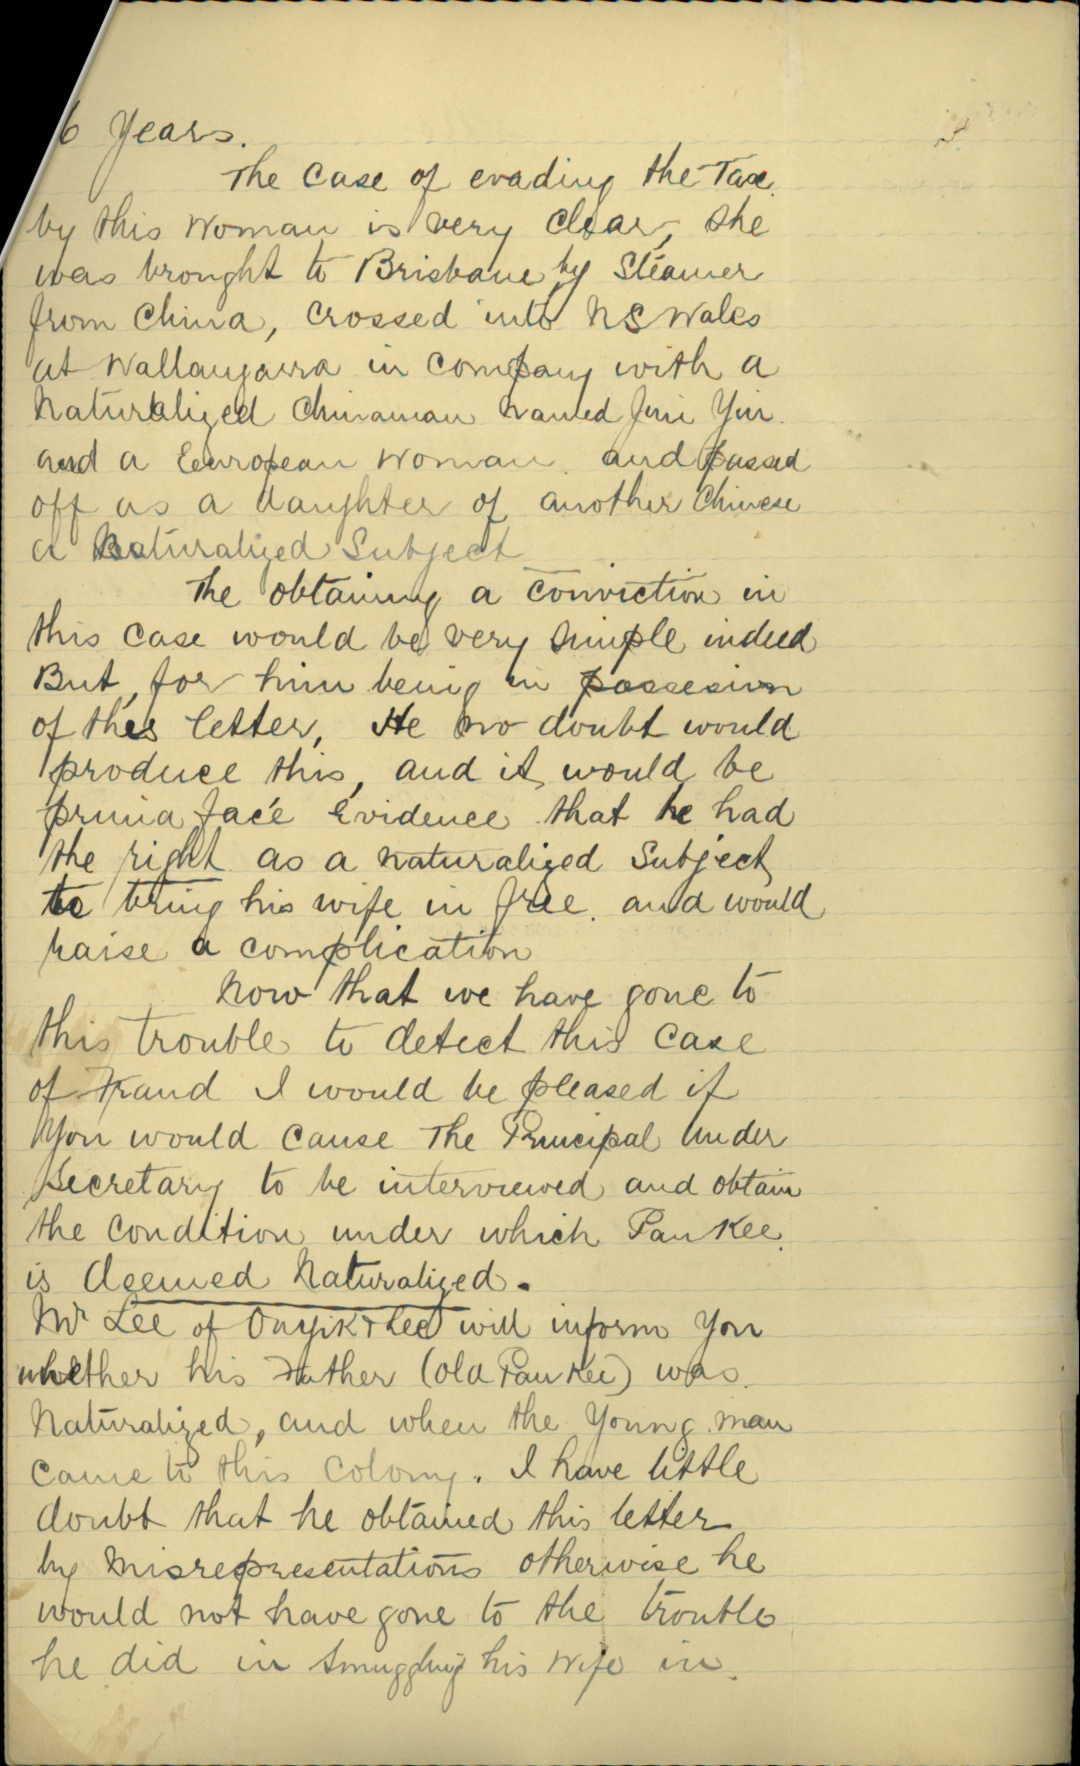 6 Years.
The Case of evading the Tax
by this Woman is very Clear, She
was brought to Brisbane by Steamer
from China, Crossed into N S Wales
at Wallangarra in Company with a
Naturalized Chinaman Named Jim Yin
and a European Woman and passed
off as a daughter of another Chinese
a Naturalized Subject
The obtaining a Conviction in
this Case would be very Simple indeed
But, for him being in possesion
of this letter, He no doubt would
produce this, and it would be
prima facé Evidence that he had
the right as a naturalized Subject
to bring his wife in free. and would
raise a complication
Now that we have gone to
this trouble to detect this Case
of Fraud I would be pleased if
You would Cause The Principal Under
Secretary to be interviewed and obtain
the Condition under which Pan Kee
is deemed Naturalized.
Mr Lee of On Yik & Lee will inform You
whether his Father (old Pan Kee) was
Naturalized, and when the Young man
Came to this Colony. I have little
doubt that he obtained this letter
by Misrepresentations otherwise he
would not have gone to the trouble
he did in Smuggling his Wife in.